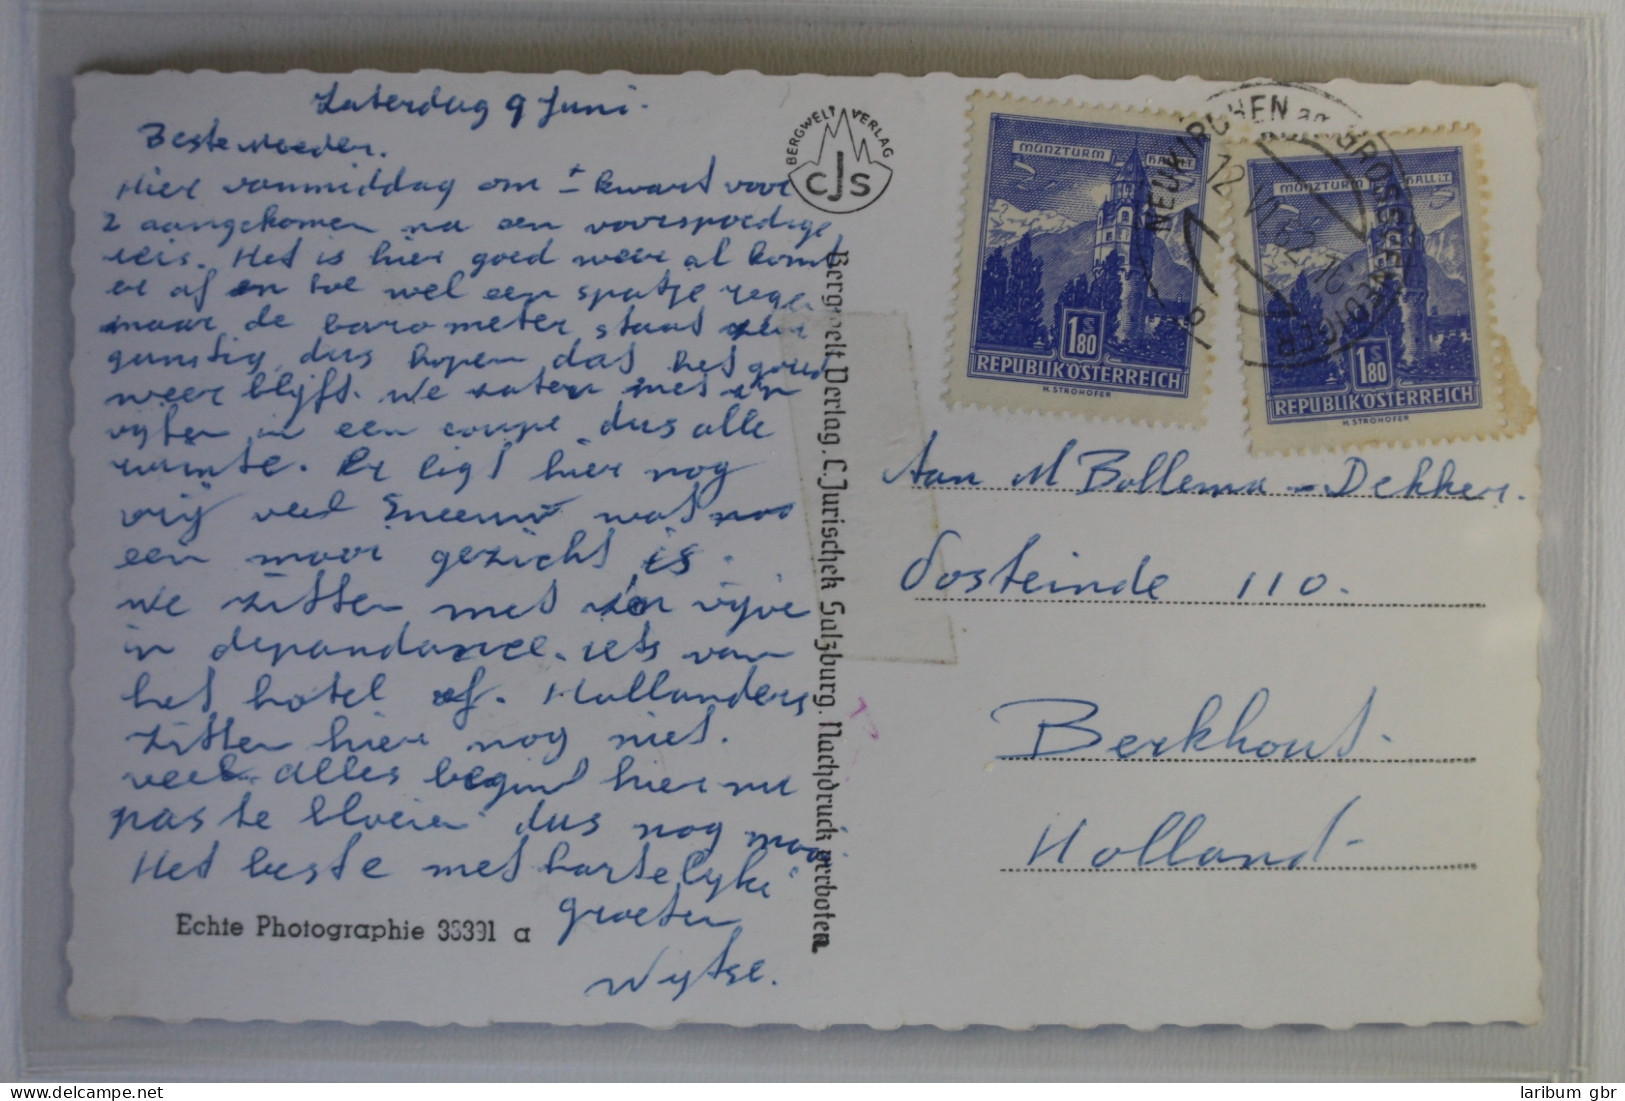 Zaterdag 9 Juni.
Beste Moeder.
Hier vanmiddag om ± kwart voor
2 aangekomen na een voorspoedige
reis. Het is hier goed weer al komt
er af en toe wel een spatje regen
maar de barometer staat zeer
gunstig dus hopen dat het goede
weer blijft. We zaten met z'n
vijfen in een coupe dus alle
ruimte. Er ligt hier nog
vrij veel Sneeuw wat
een mooi gezicht is.
We zitten met z'n vijve
in dependance. iets van
het hotel af. Hollanders
zitten hier nog niet.
veel. alles begint hier nu
pas te bloeien dus nog mooi
Het beste met hartelyke
groeten
Wytse.
Echte Photographie 38391 a
BERGWELT VERLAG
CJS
Bergwelt Verlag, C. Jurischek Salzburg. Nachdruck verboten
MÜNZTURM HALL i.T.
S
1.80
REPUBLIK ÖSTERREICH
H. STROHOFER
MÜNZTURM HALL i.T.
S
1.80
REPUBLIK ÖSTERREICH
H. STROHOFER
NEUKIRCHEN am GROSSVENEDIGER
12.VI.62.16
Aan M Bollema-Dekker.
Oosteinde 110.
Berkhout.
Holland.
delcampe.net
laribum gbr